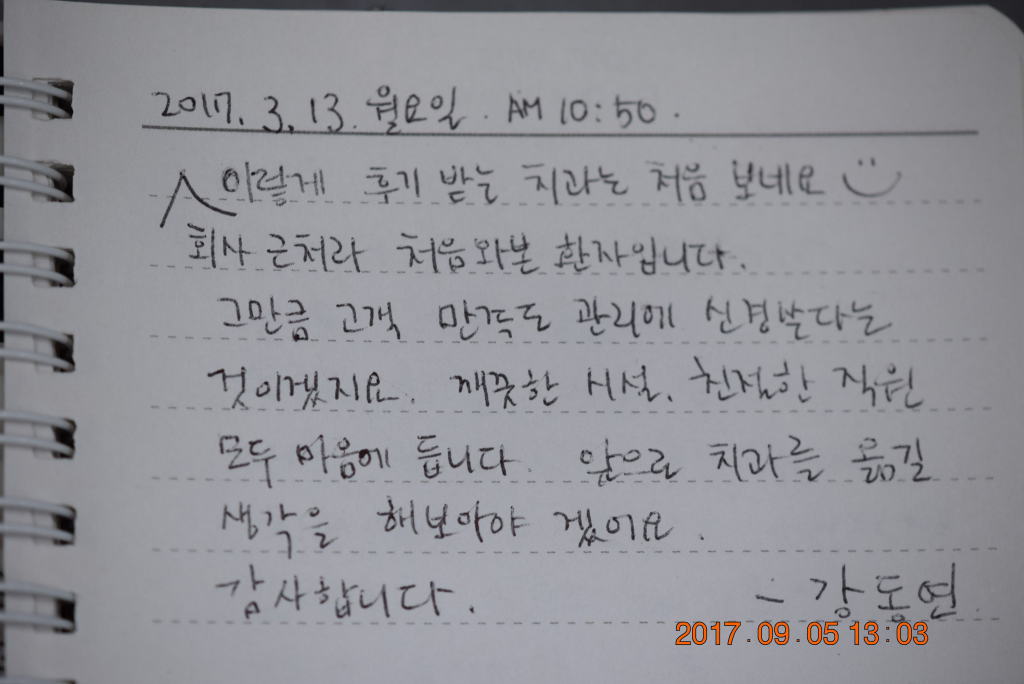 2017. 3. 13. 월요일. AM 10:50.
이렇게 후기 받는 치과는 처음 보네요
회사 근처라 처음와본 환자입니다.
그만큼 고객 만족도 관리에 신경쓴다는
것이겠지요. 깨끗한 시설, 친절한 직원
모두 마음에 듭니다. 앞으로 치과를 옮길
생각을 해보아야 겠어요.
감사합니다. - 강동연
2017.09.05 13:03